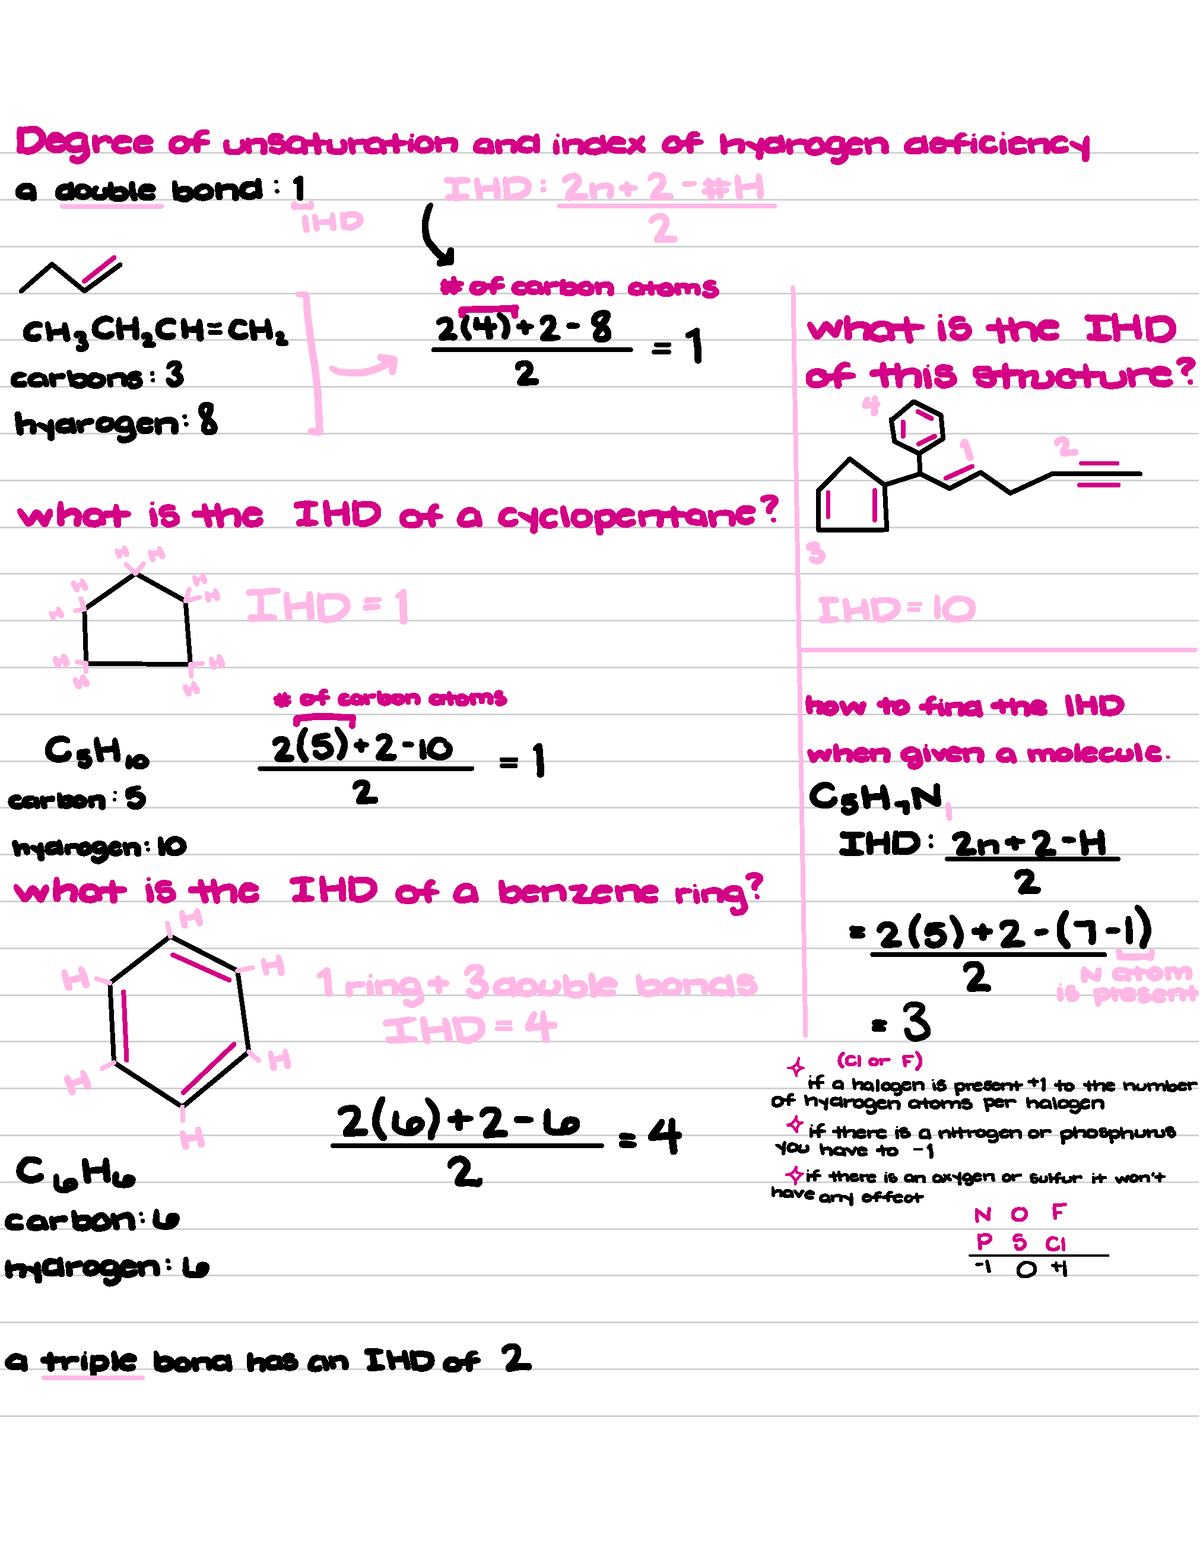 Degree of unsaturation and index of hydrogen deficiency
a double bond : 1
IHD
IHD : 2n + 2 - #H
2
# of carbon atoms
2(4) + 2 - 8
2
= 1
CH₃CH₂CH=CH₂
carbons : 3
hydrogen : 8
what is the IHD of a cyclopentane?
H H
H H
H H
H H
H H
IHD = 1
# of carbon atoms
C₅H₁₀
2(5) + 2 - 10
2
= 1
carbon : 5
hydrogen : 10
what is the IHD of a benzene ring?
H
H H
H H
H
1 ring + 3 double bonds
IHD = 4
2(6) + 2 - 6
2
= 4
C₆H₆
carbon : 6
hydrogen : 6
a triple bond has an IHD of 2
what is the IHD
of this structure?
4
1 2
3
IHD = 10
how to find the IHD
when given a molecule.
C₅H₇N₁
IHD : 2n + 2 - H
2
= 2(5) + 2 - (7 - 1)
2
N atom
is present
= 3
(Cl or F)
if a halogen is present +1 to the number
of hydrogen atoms per halogen
if there is a nitrogen or phosphurus
you have to -1
if there is an oxygen or sulfur it won't
have any effect
N O F
P S Cl
-1 0 +1